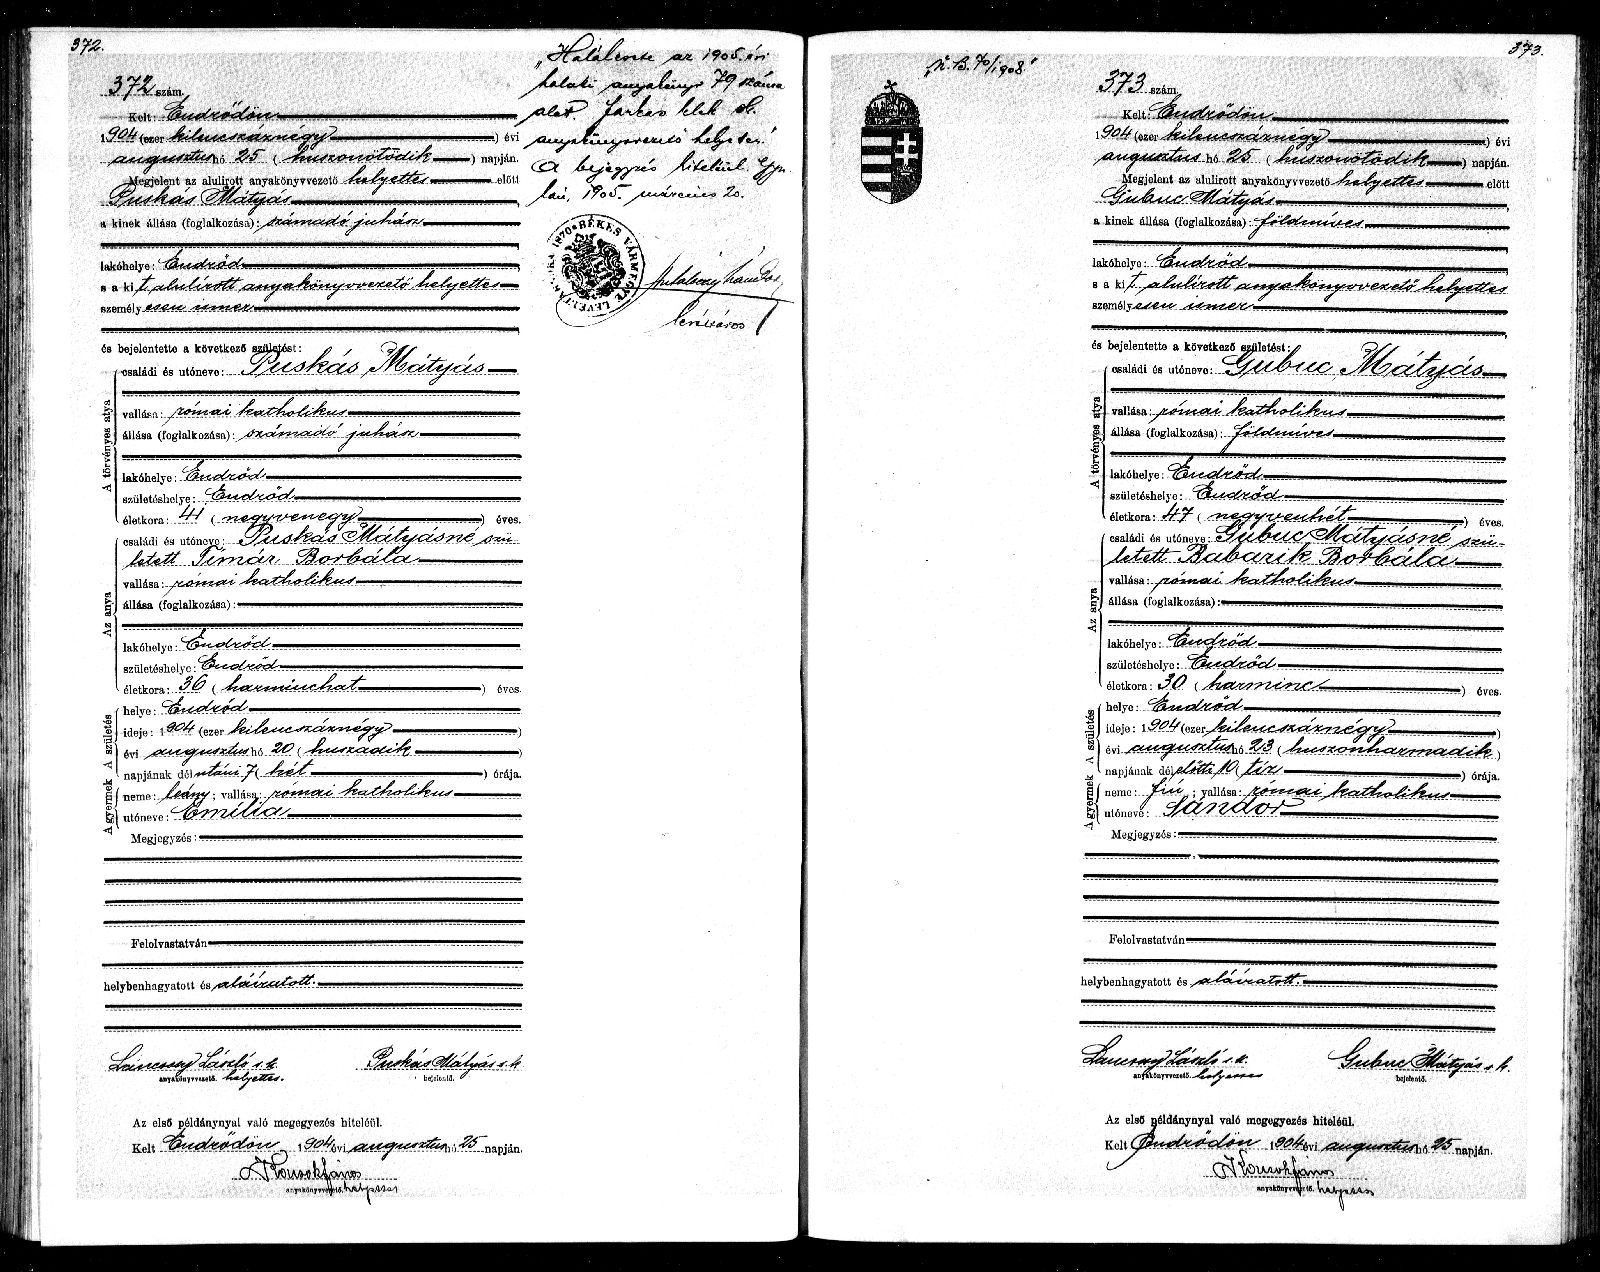 372.
372 szám.
Kelt: Endrődön
1904 (ezer kilencszáznégy) évi
augusztus hó 25 (huszonötödik) napján.
Megjelent az alulirott anyakönyvvezető helyettes előtt
Puskás Mátyás
a kinek állása (foglalkozása): számadó juhász
lakóhelye: Endrőd
s a kit alulírott anyakönyvvezető helyettes
személyesen ismer
és bejelentette a következő születést:
A törvényes atya
családi és utóneve: Puskás Mátyás
vallása: római katholikus
állása (foglalkozása): számadó juhász
lakóhelye: Endrőd
születéshelye: Endrőd
életkora: 41 (negyvenegy) éves.
Az anya
családi és utóneve: Puskás Mátyásné szü-
letett Tímár Borbála
vallása: római katholikus
állása (foglalkozása):
lakóhelye: Endrőd
születéshelye: Endrőd
életkora: 36 (harminchat) éves.
A születés
helye: Endrőd
ideje: 1904 (ezer kilencszáznégy)
évi augusztus hó 20 (huszadik)
napjának délutáni 7 (hét) órája.
A gyermek
neme: leány; vallása: római katholikus
utóneve: Emília
Megjegyzés:
Felolvastatván
helybenhagyatott és aláíratott.
László s.k. Puskás Mátyás s.k.
anyakönyvvezető. helyettes. bejelentő.
Az első példánynyal való megegyezés hiteléül.
Kelt Endrődön 1904 évi augusztus hó 25 napján.
anyakönyvvezető. helyettes
„Halálesete az 1905. évi
halálozási anyakönyv 79 száma
alatt. Farkas Elek s.k.
anyakönyvvezető helyettes."
A bejegyzés hiteléül. Gyu
lán, 1905. március 20.
BÉKES VÁRMEGYE LEVÉLTÁRA 1870
373.
373 szám.
Kelt: Endrődön
1904 (ezer kilencszáznégy) évi
augusztus hó 25 (huszonötödik) napján.
Megjelent az alulirott anyakönyvvezető helyettes előtt
Gubuc Mátyás
a kinek állása (foglalkozása): földmíves
lakóhelye: Endrőd
s a kit alulírott anyakönyvvezető helyettes
személyesen ismer
és bejelentette a következő születést:
A törvényes atya
családi és utóneve: Gubuc Mátyás
vallása: római katholikus
állása (foglalkozása): földmíves
lakóhelye: Endrőd
születéshelye: Endrőd
életkora: 47 (negyvenhét) éves.
Az anya
családi és utóneve: Gubuc Mátyásné szü-
letett Babarik Borbála
vallása: római katholikus
állása (foglalkozása):
lakóhelye: Endrőd
születéshelye: Endrőd
életkora: 30 (harminc) éves.
A születés
helye: Endrőd
ideje: 1904 (ezer kilencszáznégy)
évi augusztus hó 23 (huszonharmadik)
napjának délelőtti 10 (tíz) órája.
A gyermek
neme: fiú; vallása: római katholikus
utóneve: Sándor
Megjegyzés:
Felolvastatván
helybenhagyatott és aláíratott.
László s.k. Gubuc Mátyás s.k.
anyakönyvvezető. helyettes bejelentő.
Az első példánynyal való megegyezés hiteléül.
Kelt Endrődön 1904 évi augusztus hó 25 napján.
anyakönyvvezető. helyettes